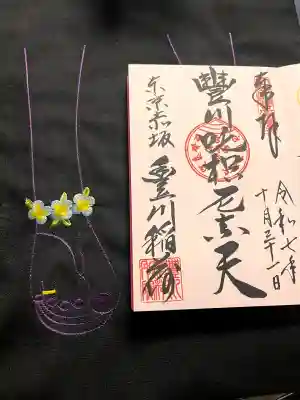 奉拝
令和七年
十月三十一日
豊川吒枳尼真天
東京赤坂
豊川稲荷